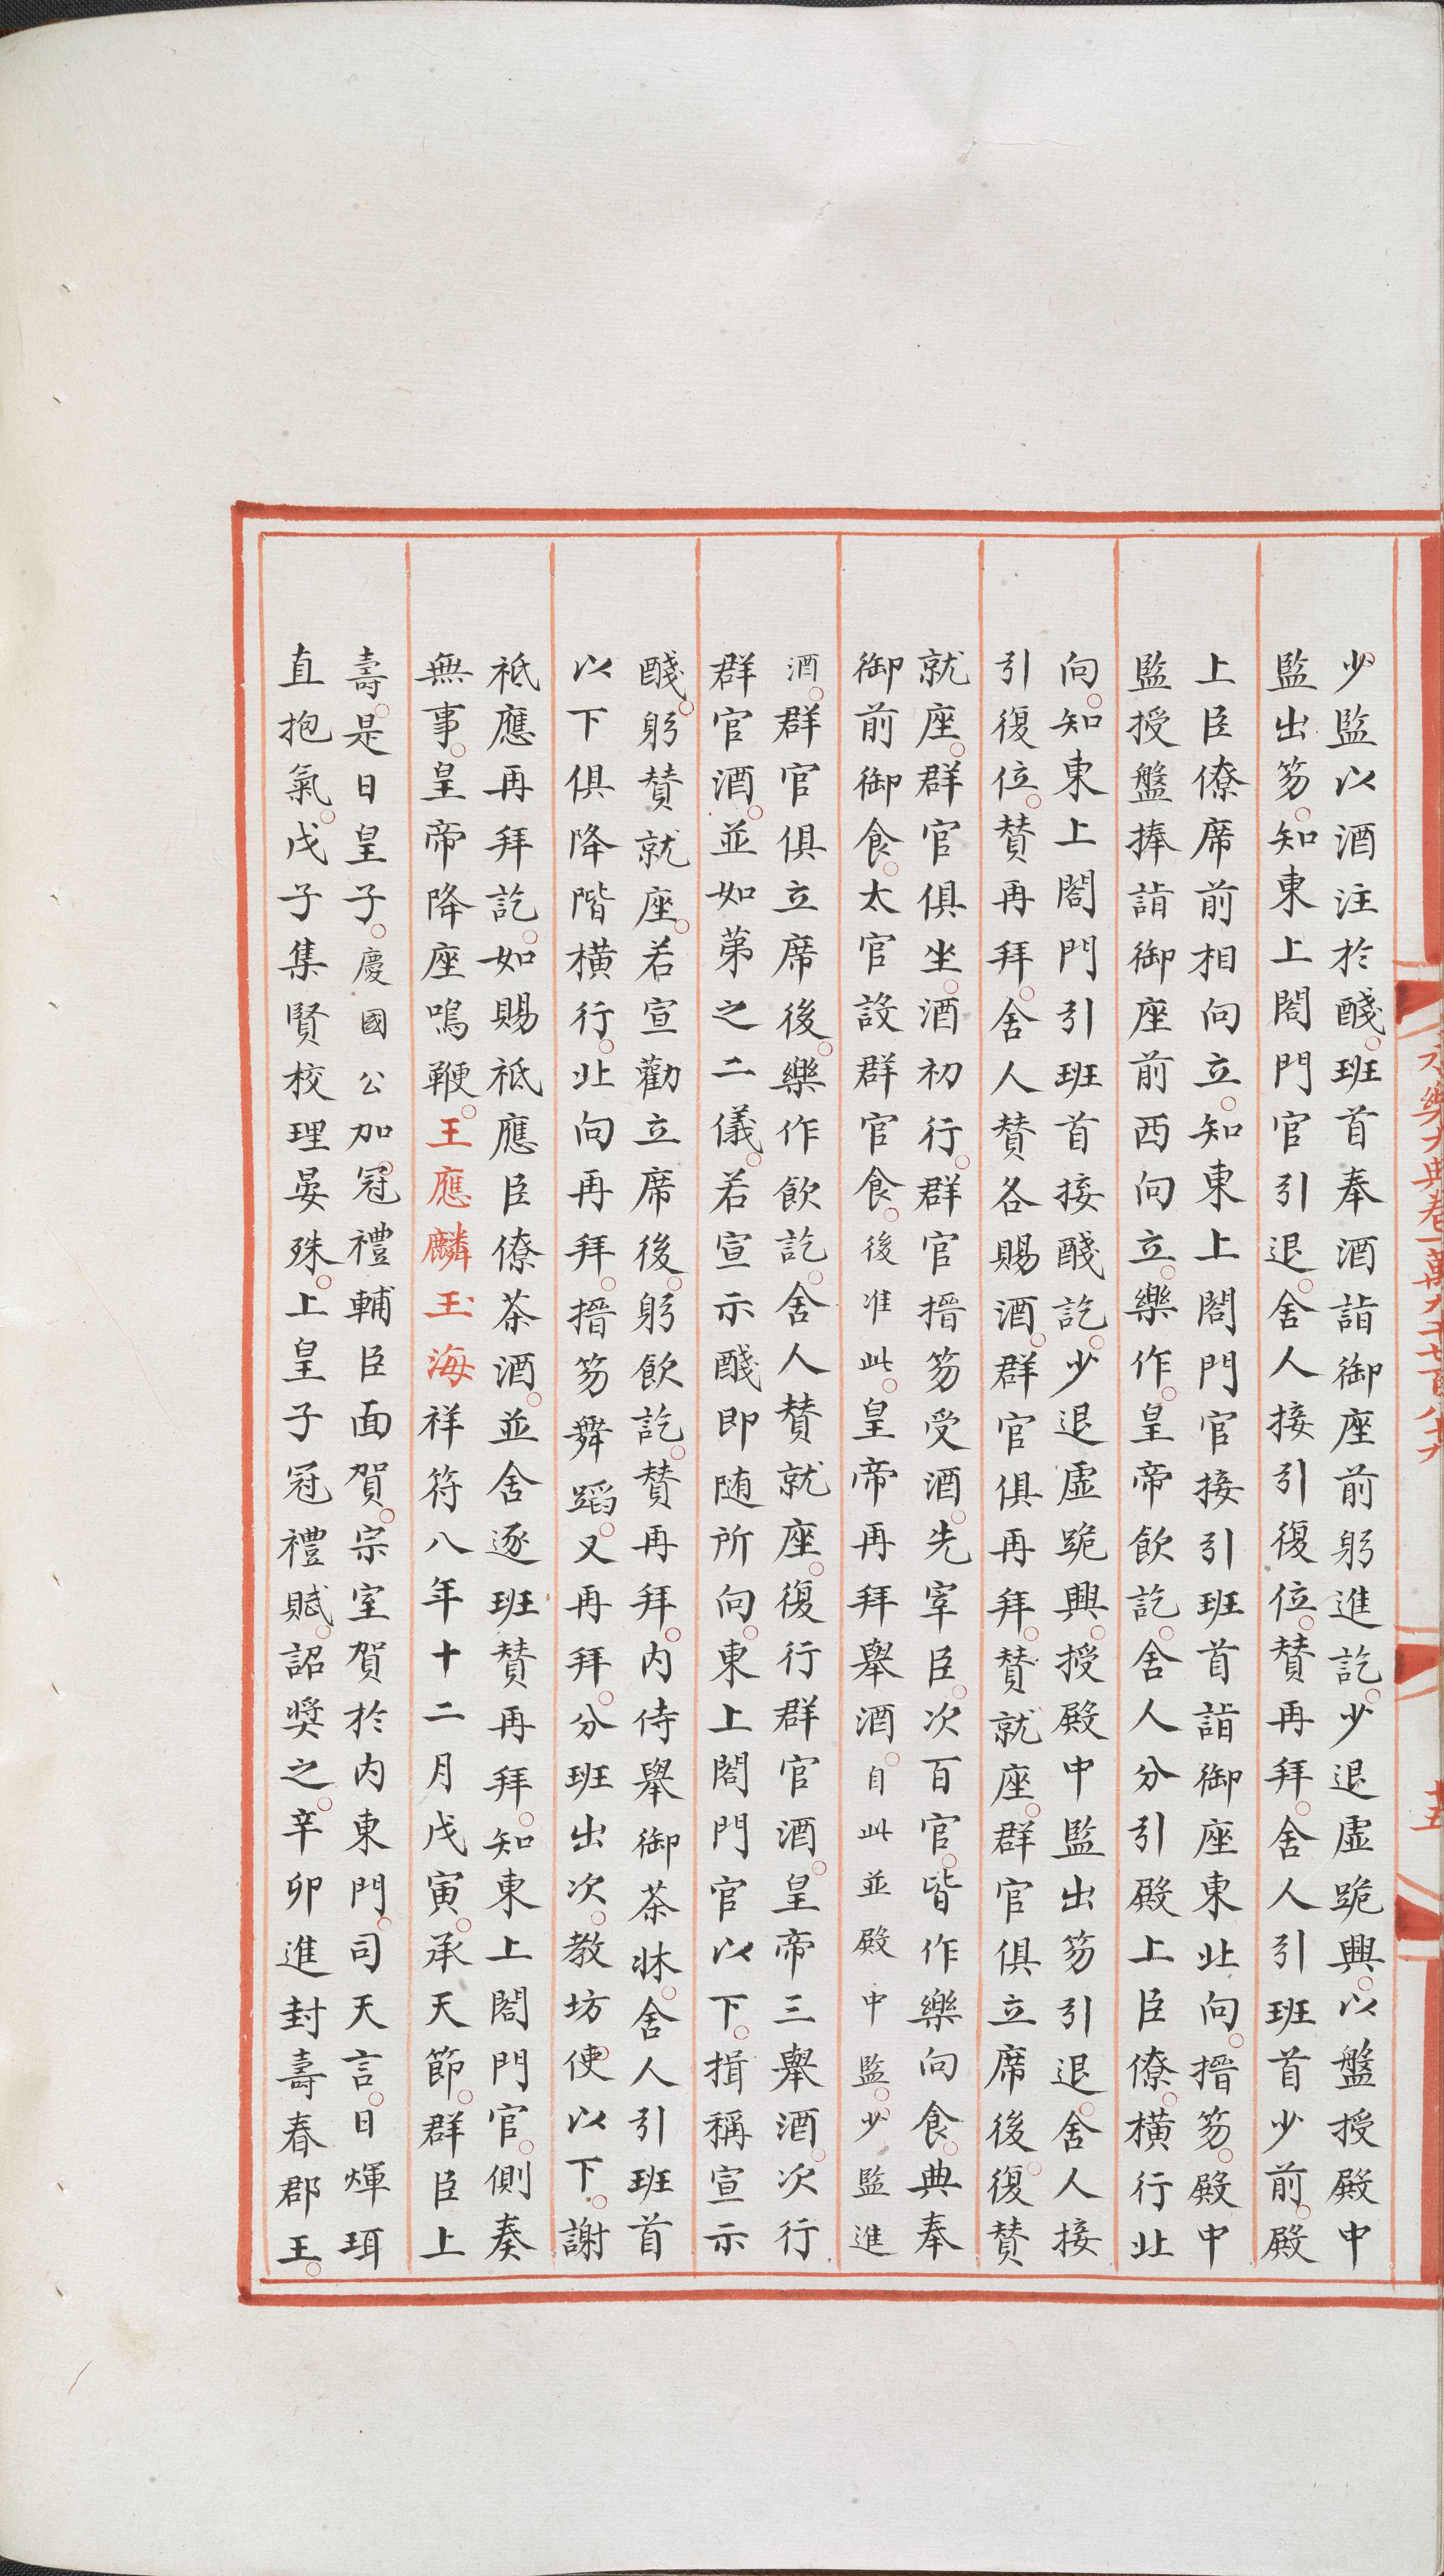 少監以酒注於醆班首奉酒詣御座前躬進訖少退虛跪興以盤授殿中
監出笏知東上閤門官引退舍人接引復位贊再拜舍人引班首少前殿
上臣僚席前相向立知東上閤門官接引班首詣御座東北向搢笏殿中
監授盤捧詣御座前西向立樂作皇帝飲訖舍人分引殿上臣僚橫行北
向知東上閤門引班首接醆訖少退虛跪興授殿中監出笏引退舍人接
引復位贊再拜舍人贊各賜酒群官俱再拜贊就座群官俱立席後復贊
就座群官俱坐酒初行群官搢笏受酒先宰臣次百官皆作樂向食典奉
御前御食太官設群官食後准此皇帝再拜舉酒自此並殿中監少監進
酒群官俱立席後樂作飲訖舍人贊就座復行群官酒皇帝三舉酒次行
群官酒並如第之二儀若宣示醆即随所向東上閤門官以下揖稱宣示
醆躬贊就座若宣勸立席後躬飲訖贊再拜內侍舉御茶牀舍人引班首
以下俱降階橫行北向再拜搢笏舞蹈又再拜分班出次教坊使以下謝
祗應再拜訖如賜祗應臣僚茶酒並舍逐班贊再拜知東上閤門官側奏
無事皇帝降座鳴鞭王應麟玉海祥符八年十二月戊寅承天節群臣上
壽是日皇子慶國公加冠禮輔臣面賀宗室賀於內東門司天言日煇珥
直抱氣戊子集賢校理晏殊上皇子冠禮賦詔奬之辛卯進封壽春郡王
永樂大典卷一萬九千七百八十六
十五